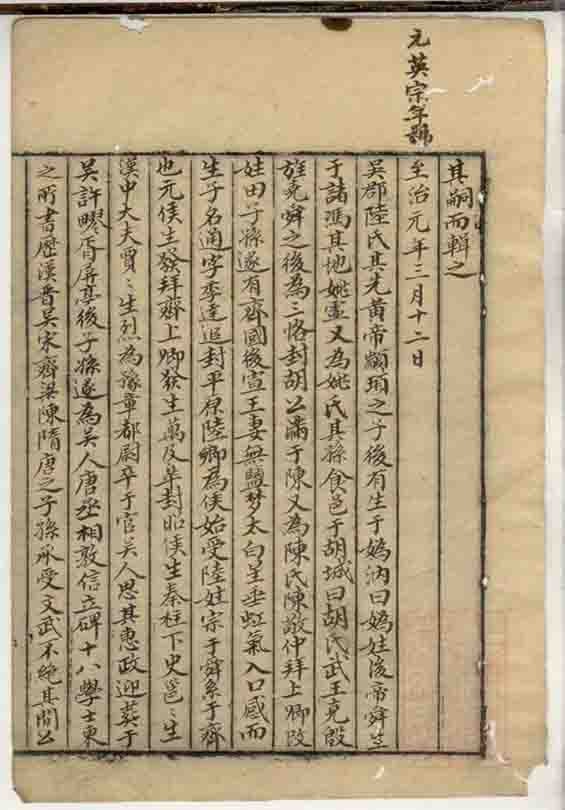 元英宗年號
其嗣而輯之
至治元年三月十二日
吳郡陸氏其先黃帝顓頊之子後有生于媯汭曰媯姓後帝舜生
于諸馮其地姚墟又為姚氏其孫食邑于胡城曰胡氏武王克殷
旌堯舜之後為三恪封胡公滿于陳又為陳氏陳敬仲拜上卿改
姓田子孫遂有齊國後宣王妻無鹽夢太白星垂虹氣入口感而
生子名通字季達追封平原陸鄉為侯始受陸姓宗于舜系于齊
也元侯生發拜齊上卿發生萬及皐封昭侯生秦柱下史邕邕生
漢中大夫賈賈生烈為豫章都尉卒于官吳人思其惠政迎葬于
吳許胥屏亭後子孫遂為吳人唐丞相敦信立碑十八學士東
之所書歷漢晉吳宋齊梁陳隋唐之子孫承受文武不絕其間公